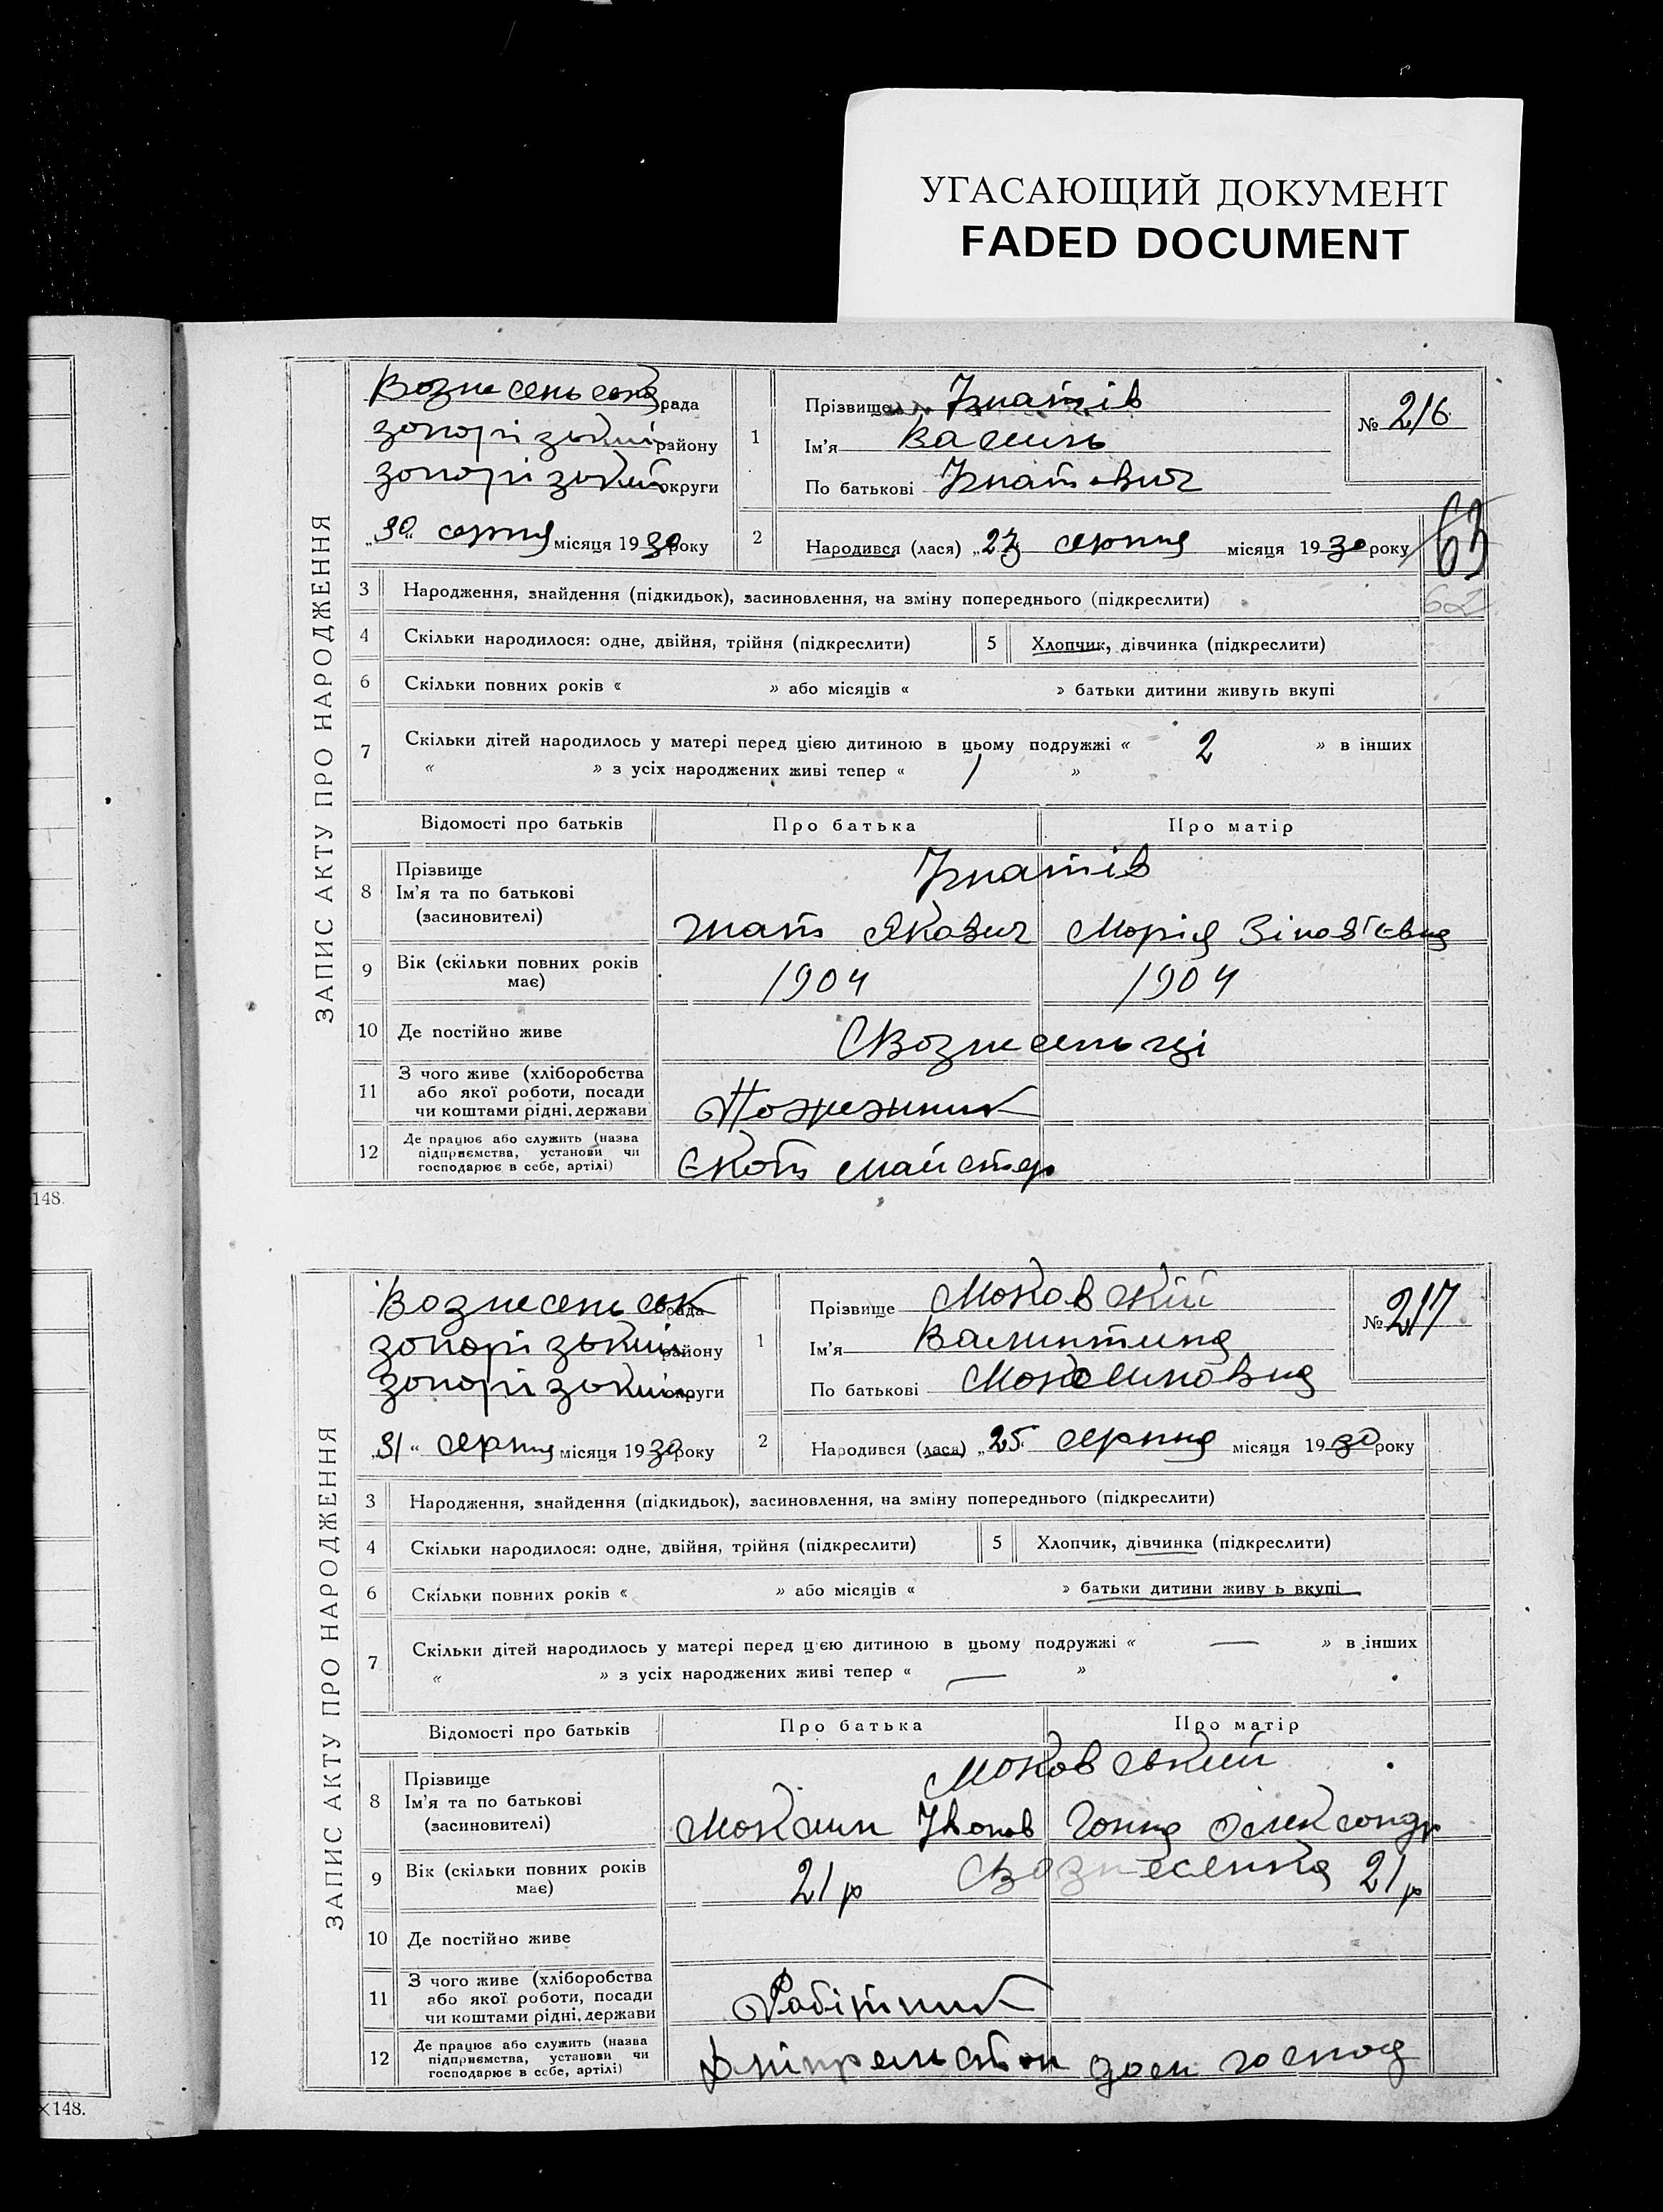 УГАСАЮЩИЙ ДОКУМЕНТ
FADED DOCUMENT
ЗАПИС АКТУ ПРО НАРОДЖЕННЯ
Вознесенська рада
Запорізький району
Запорізький округи
„30“ серпня місяця 1930 року
1
Прізвище Ігнатів
Ім'я Василь
По батькові Ігнатович
№ 216
2
Народився (лася) „27 серпня місяця 1930 року
63
62
3 Народження, знайдення (підкидьок), засиновлення, на зміну попереднього (підкреслити)
4 Скільки народилося: одне, двійня, трійня (підкреслити) 5 Хлопчик, дівчинка (підкреслити)
6 Скільки повних років « » або місяців « » батьки дитини живуть вкупі
7 Скільки дітей народилось у матері перед цією дитиною в цьому подружжі « 2 » в інших
« » з усіх народжених живі тепер « 1 »
Відомості про батьків Про батька Про матір
8 Прізвище
Ім'я та по батькові
(засиновителі)
Ігнатів
Гнат Якович Морія Зіновʼєвна
9 Вік (скільки повних років має) 1904 1904
10 Де постійно живе Свознесенці
11 З чого живе (хліборобства
або якої роботи, посади
чи коштами рідні, держави
Пожежник
12 Де працює або служить (назва
підприємства, установи чи
господарює в себе, артілі)
майстер
148.
ЗАПИС АКТУ ПРО НАРОДЖЕННЯ
Вознесенськ рада
Запорізький району
Запорізький округи
„31“ серпня місяця 1930 року
1
Прізвище Моковский
Ім'я Валинтина
По батькові Моксимовна
№ 217
2
Народився (лася) „25 серпня місяця 1930 року
3 Народження, знайдення (підкидьок), засиновлення, на зміну попереднього (підкреслити)
4 Скільки народилося: одне, двійня, трійня (підкреслити) 5 Хлопчик, дівчинка (підкреслити)
6 Скільки повних років « » або місяців « » батьки дитини живу ь вкупі
7 Скільки дітей народилось у матері перед цією дитиною в цьому подружжі « — » в інших
« » з усіх народжених живі тепер « — »
Відомості про батьків Про батька Про матір
8 Прізвище
Ім'я та по батькові
(засиновителі)
Моковський
Моксим Івонов Гонна Олександр
9 Вік (скільки повних років має) 21 р Свознесенка 21 р
10 Де постійно живе
11 З чого живе (хліборобства
або якої роботи, посади
чи коштами рідні, держави
Робітник
12 Де працює або служить (назва
підприємства, установи чи
господарює в себе, артілі)
дом господ
×148.